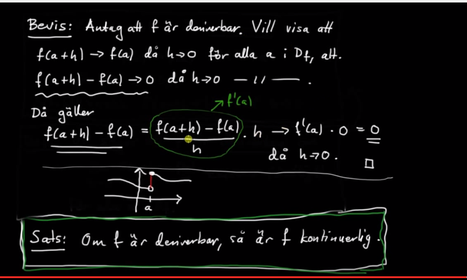 Bevis: Antag att f är deriverbar. Vill visa att
f(a+h) → f(a) då h→0 för alla a i Df, alt.
f(a+h) - f(a) → 0 då h→0 — 〃 —.
→ f'(a)
Då gäller
f(a+h) - f(a) = \frac{f(a+h) - f(a)}{h} · h → f'(a) · 0 = 0
då h→0. □
a
Sats: Om f är deriverbar, så är f kontinuerlig.